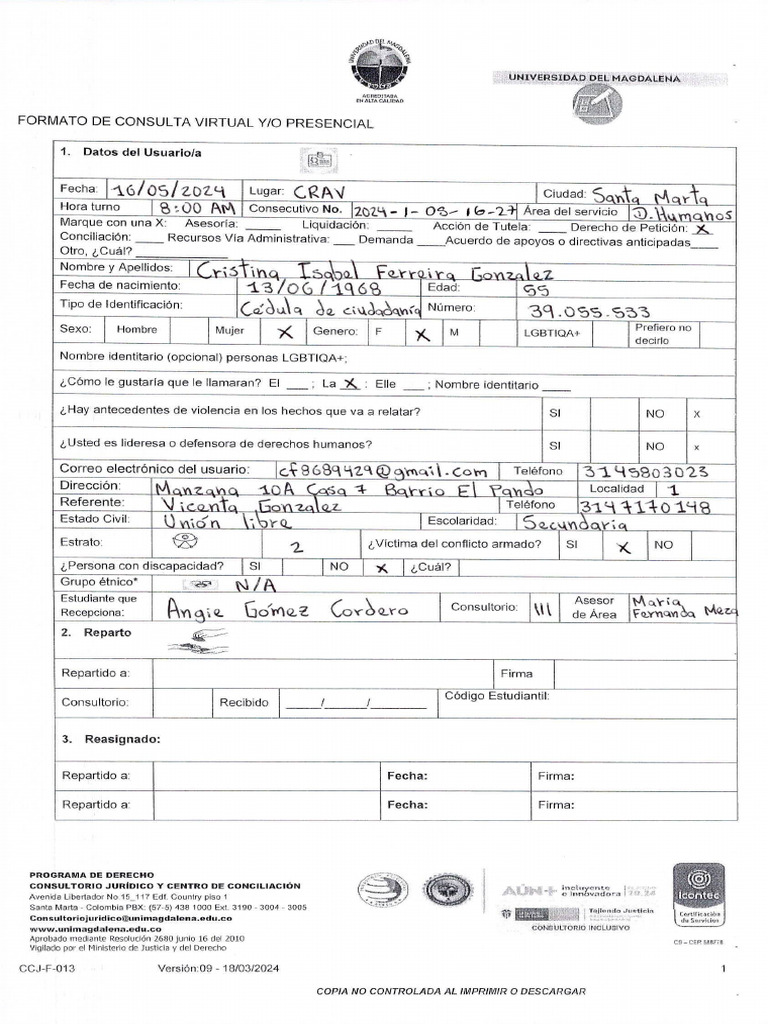 UNIVERSIDAD DEL MAGDALENA
ACREDITADA
EN ALTA CALIDAD
UNIVERSIDAD DEL MAGDALENA
FORMATO DE CONSULTA VIRTUAL Y/O PRESENCIAL
1. Datos del Usuario/a
Fecha: 16/05/2024 Lugar: CRAV Ciudad: Santa Marta
Hora turno 8:00 AM Consecutivo No. 2024-1-05-16-27 Área del servicio D. Humanos
Marque con una X: Asesoría: ____ Liquidación: ____ Acción de Tutela: ____ Derecho de Petición: X
Conciliación: ____ Recursos Vía Administrativa: ____ Demanda ____ Acuerdo de apoyos o directivas anticipadas____
Otro, ¿Cuál? ____
Nombre y Apellidos: Cristina Isabel Ferreira Gonzalez
Fecha de nacimiento: 13/06/1968 Edad: 55
Tipo de Identificación: Cédula de ciudadanía Número: 39.055.533
Sexo: Hombre Mujer X Genero: F X M LGBTIQA+ Prefiero no decirlo
Nombre identitario (opcional) personas LGBTIQA+;
¿Cómo le gustaría que le llamaran? El ___ ; La X : Elle ___ ; Nombre identitario ____
¿Hay antecedentes de violencia en los hechos que va a relatar? SI NO x
¿Usted es lideresa o defensora de derechos humanos? SI NO x
Correo electrónico del usuario: cf8689429@gmail.com Teléfono 3145803023
Dirección: Manzana 10A Casa 7 Barrio El Pando Localidad 1
Referente: Vicenta Gonzalez Teléfono 3147170148
Estado Civil: Unión libre Escolaridad: Secundaria
Estrato: 2 ¿Víctima del conflicto armado? SI X NO
¿Persona con discapacidad? SI NO X ¿Cuál?
Grupo étnico* N/A
Estudiante que Recepciona: Angie Gómez Cordero Consultorio: III Asesor de Área Maria Fernanda Meza
2. Reparto
Repartido a: Firma
Consultorio: Recibido ____/____/____ Código Estudiantil:
3. Reasignado:
Repartido a: Fecha: Firma:
Repartido a: Fecha: Firma:
PROGRAMA DE DERECHO
CONSULTORIO JURÍDICO Y CENTRO DE CONCILIACIÓN
Avenida Libertador No 15_117 Edf. Country piso 1
Santa Marta - Colombia PBX: (57-5) 438 1000 Ext. 3190 - 3004 - 3005
Consultoriojuridico@unimagdalena.edu.co
www.unimagdalena.edu.co
Aprobado mediante Resolución 2680 junio 16 del 2010
Vigilado por el Ministerio de Justicia y del Derecho
AÚN+ incluyente e innovadora
Tejiendo Justicia
CONSULTORIO INCLUSIVO
icontec
Certificación de Servicios
CCJ-F-013 Versión:09 - 18/03/2024 1
COPIA NO CONTROLADA AL IMPRIMIR O DESCARGAR